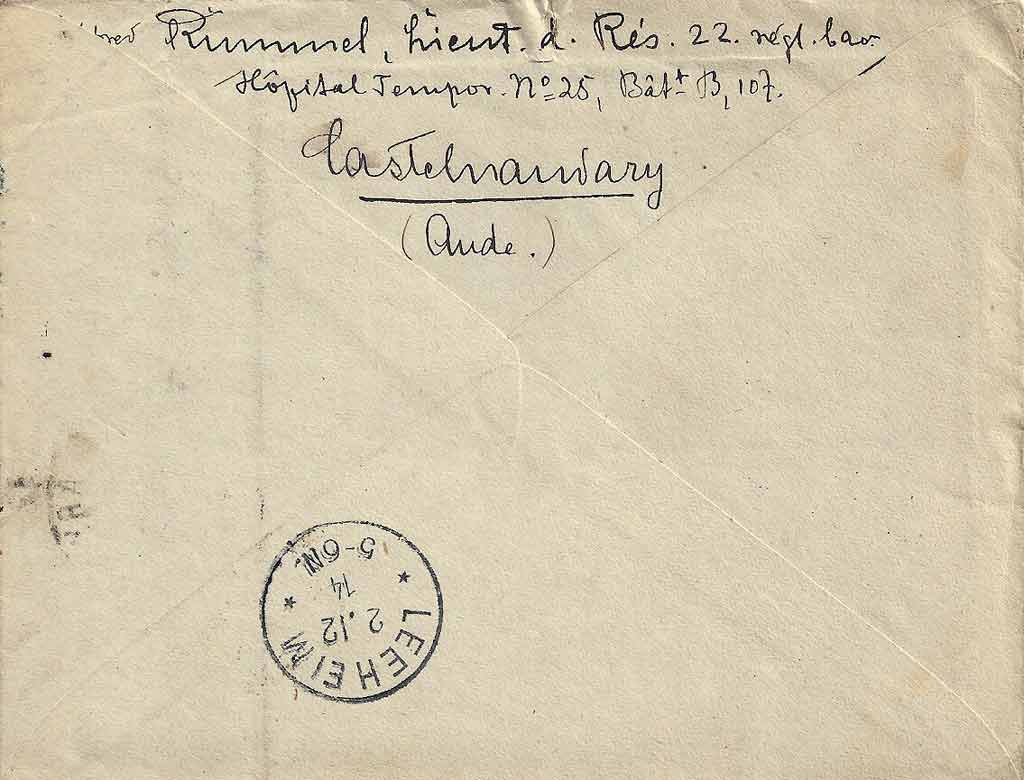 Rümmel, Lieut. d. Rés. 22. régt. bav.
Hôpital Tempor. No 25, Bâtt B, 107.
Castelnaudary
(Aude.)
LEEHEIM
2.12
14
5-6N